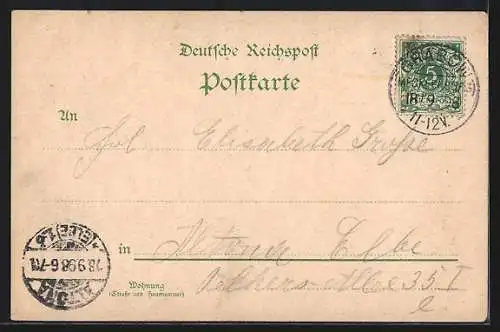 Deutsche Reichspost
Postkarte
GRABOW
5
18/9 98
11-12V.
An
Frl. Elisabeth Große
in Altona Elbe
Wohnung
(Straße und Hausnummer)
Allee 35 I
ALTONA
(ELBE) 1.
18.9.98.6-7N.